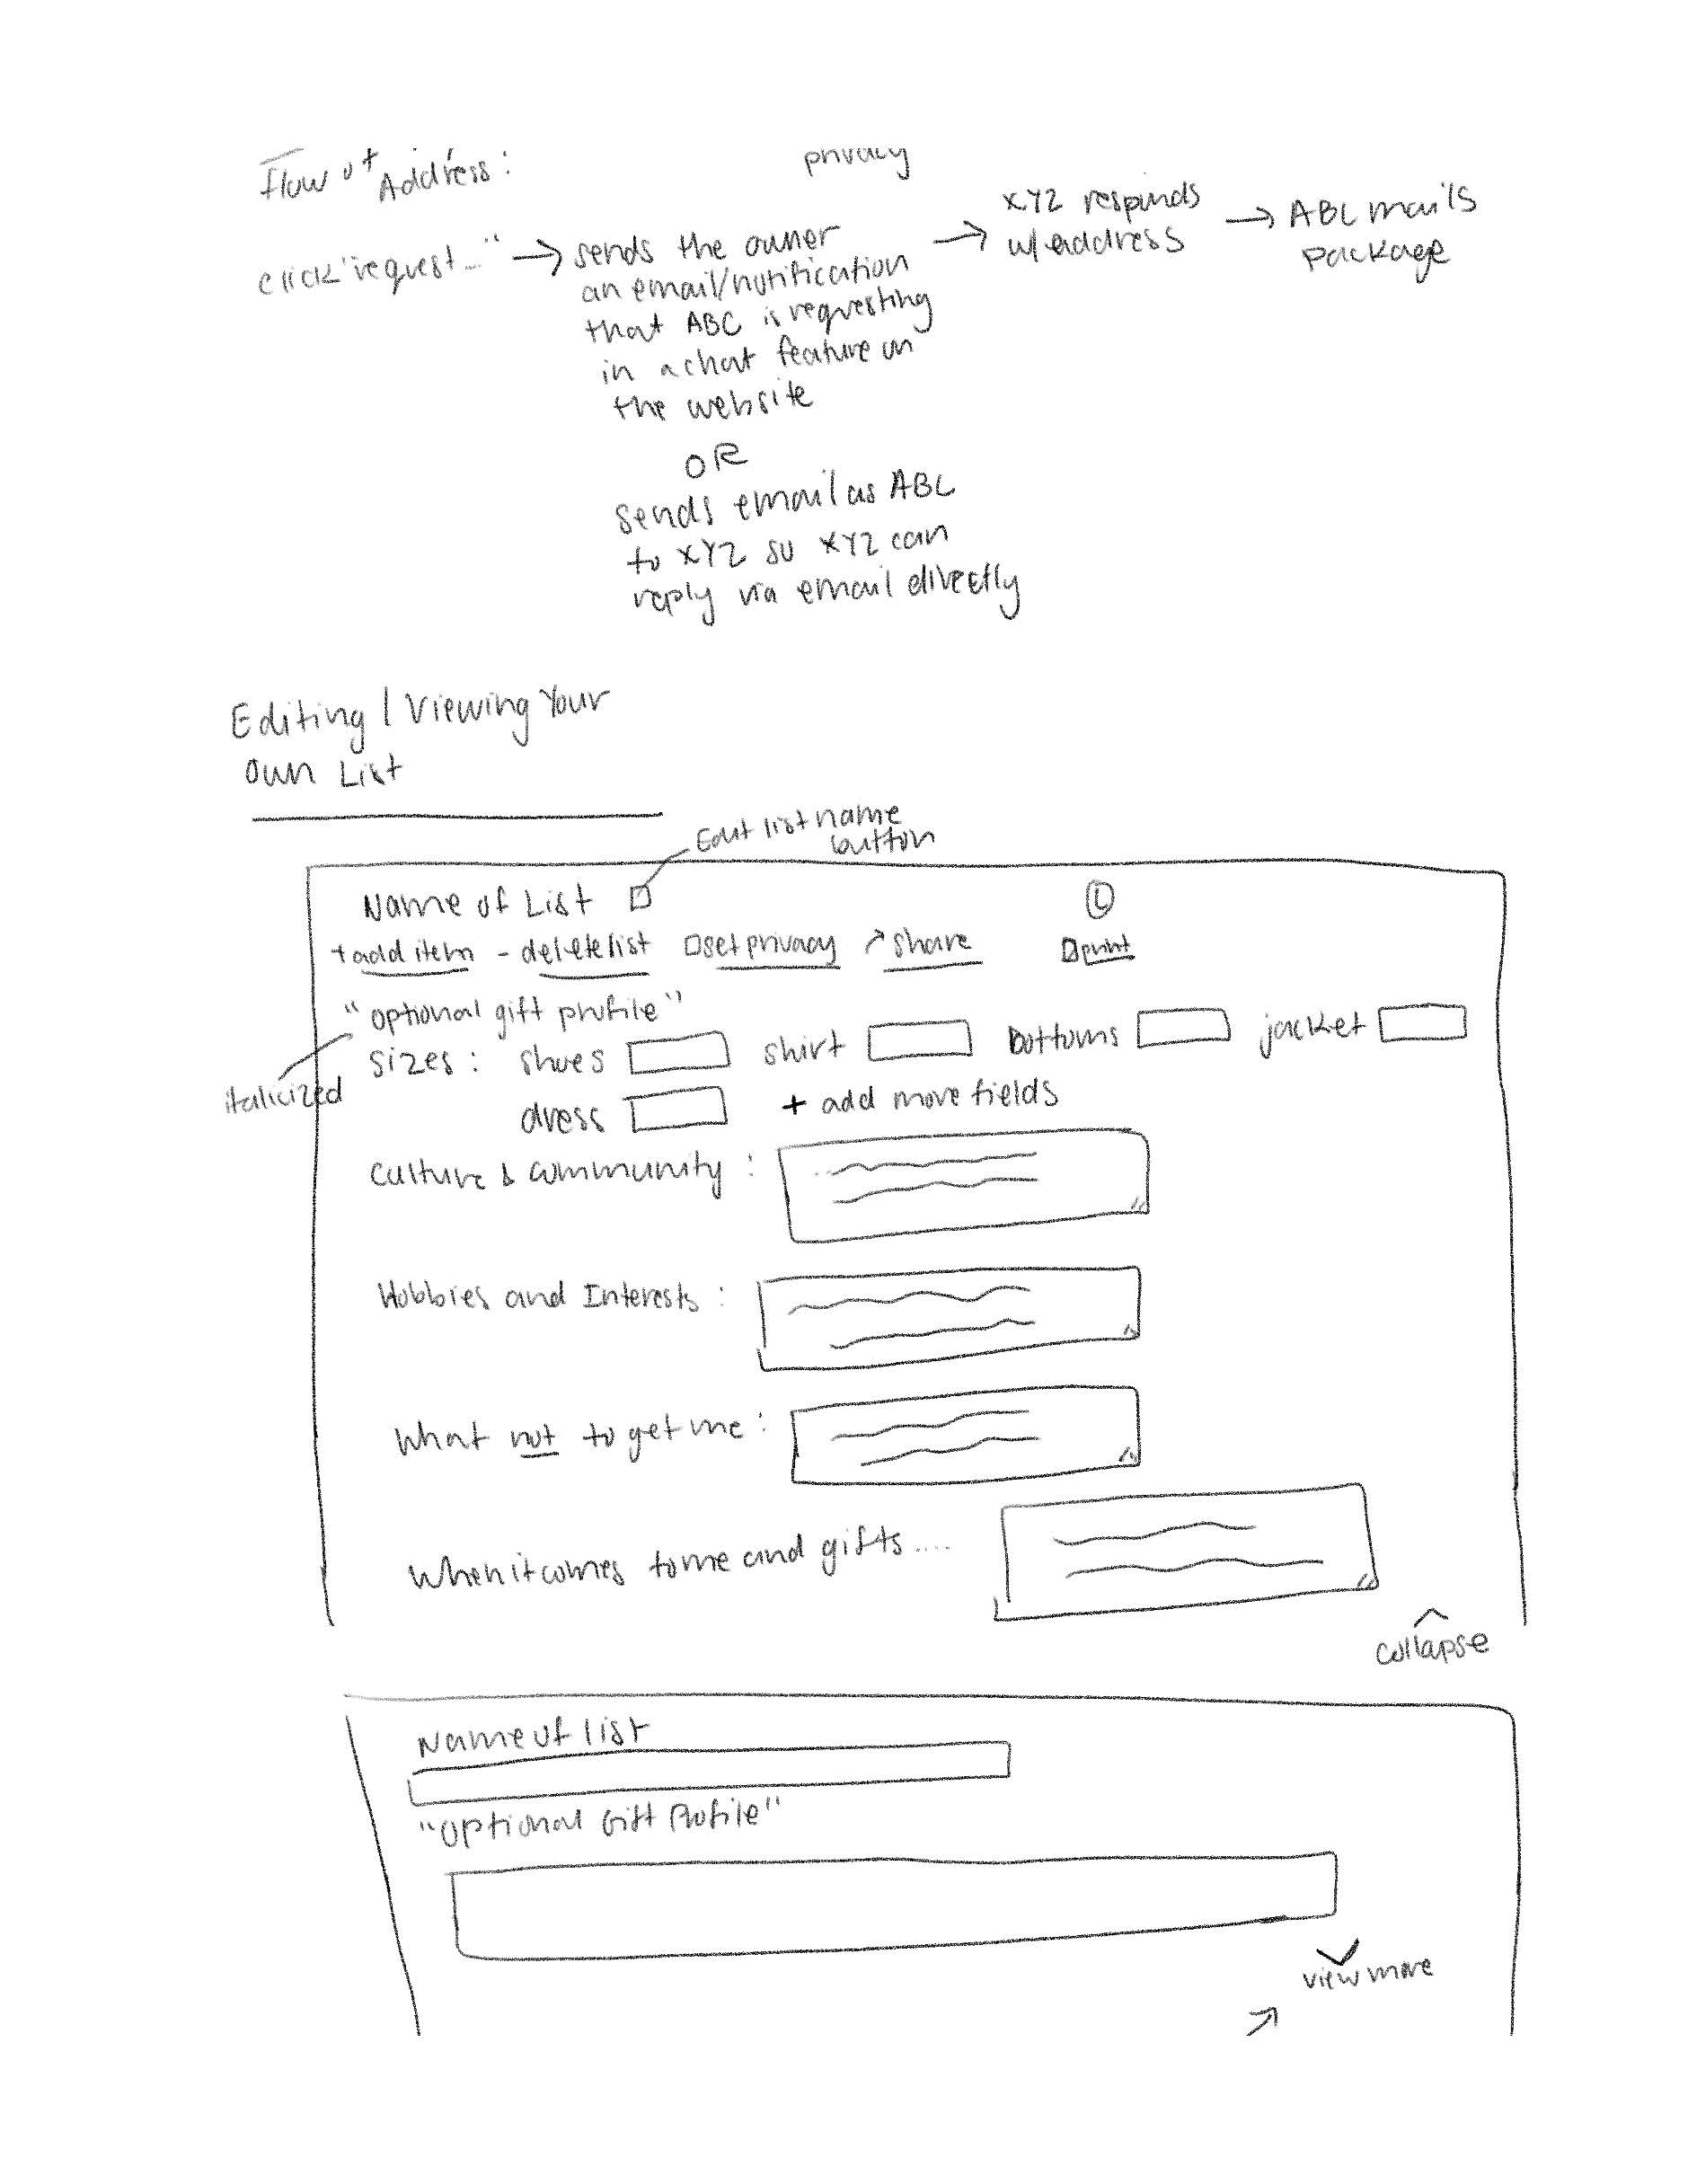 Flow of Address:
privacy
click "request..." → sends the owner
an email/notification
that ABC is requesting
in a chat feature on
the website
OR
sends email as ABC
to XYZ so XYZ can
reply via email directly
→ XYZ responds
w/ address
→ ABC mails
package
Editing / Viewing Your
Own List
Edit list name
button
Name of List
+ add item - delete list set privacy ↗ share print
"optional gift profile"
italicized
sizes: shoes shirt bottoms jacket
dress + add more fields
Culture & Community:
Hobbies and Interests:
What not to get me:
When it comes to me and gifts....
collapse
Name of list
"Optional Gift Profile"
view more